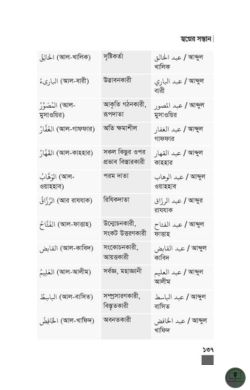 স্বপ্নের সন্তান
الْخَالِقُ (আল-খালিক) সৃষ্টিকর্তা عبد الخالق / আব্দুল খালিক
الْبَارِئُ (আল-বারী) উদ্ভাবনকারী عبد الباري / আব্দুল বারী
الْمُصَوِّرُ (আল-মুসাওয়ির) আকৃতি গঠনকারী, রূপদাতা عبد المصور / আব্দুল মুসাওয়ির
الْغَفَّارُ (আল-গাফফার) অতি ক্ষমাশীল عبد الغفار / আব্দুল গাফফার
الْقَهَّارُ (আল-কাহহার) সকল কিছুর ওপর প্রভাব বিস্তারকারী عبد القهار / আব্দুল কাহহার
الْوَهَّابُ (আল-ওয়াহহাব) পরম দাতা عبد الوهاب / আব্দুল ওয়াহহাব
الرَّزَّاقُ (আর রাযযাক) রিযিকদাতা عبد الرزاق / আব্দুর রাযযাক
الْفَتَّاحُ (আল-ফাত্তাহ) উন্মোচনকারী, সংকট উত্তরণকারী عبد الفتاح / আব্দুল ফাত্তাহ
القابض (আল-কাবিদ) সংকোচনকারী, আয়ত্তকারী عبد القابض / আব্দুল কাবিদ
الْعَلِيمُ (আল-আলীম) সর্বজ্ঞ, মহাজ্ঞানী عبد العليم / আব্দুল আলীম
الباسط (আল-বাসিত) সম্প্রসারণকারী, বিস্তৃতকারী عبد الباسط / আব্দুল বাসিত
الْخَافِضُ (আল-খাফিদ) অবনতকারী عبد الخافض / আব্দুল খাফিদ
১৩৭